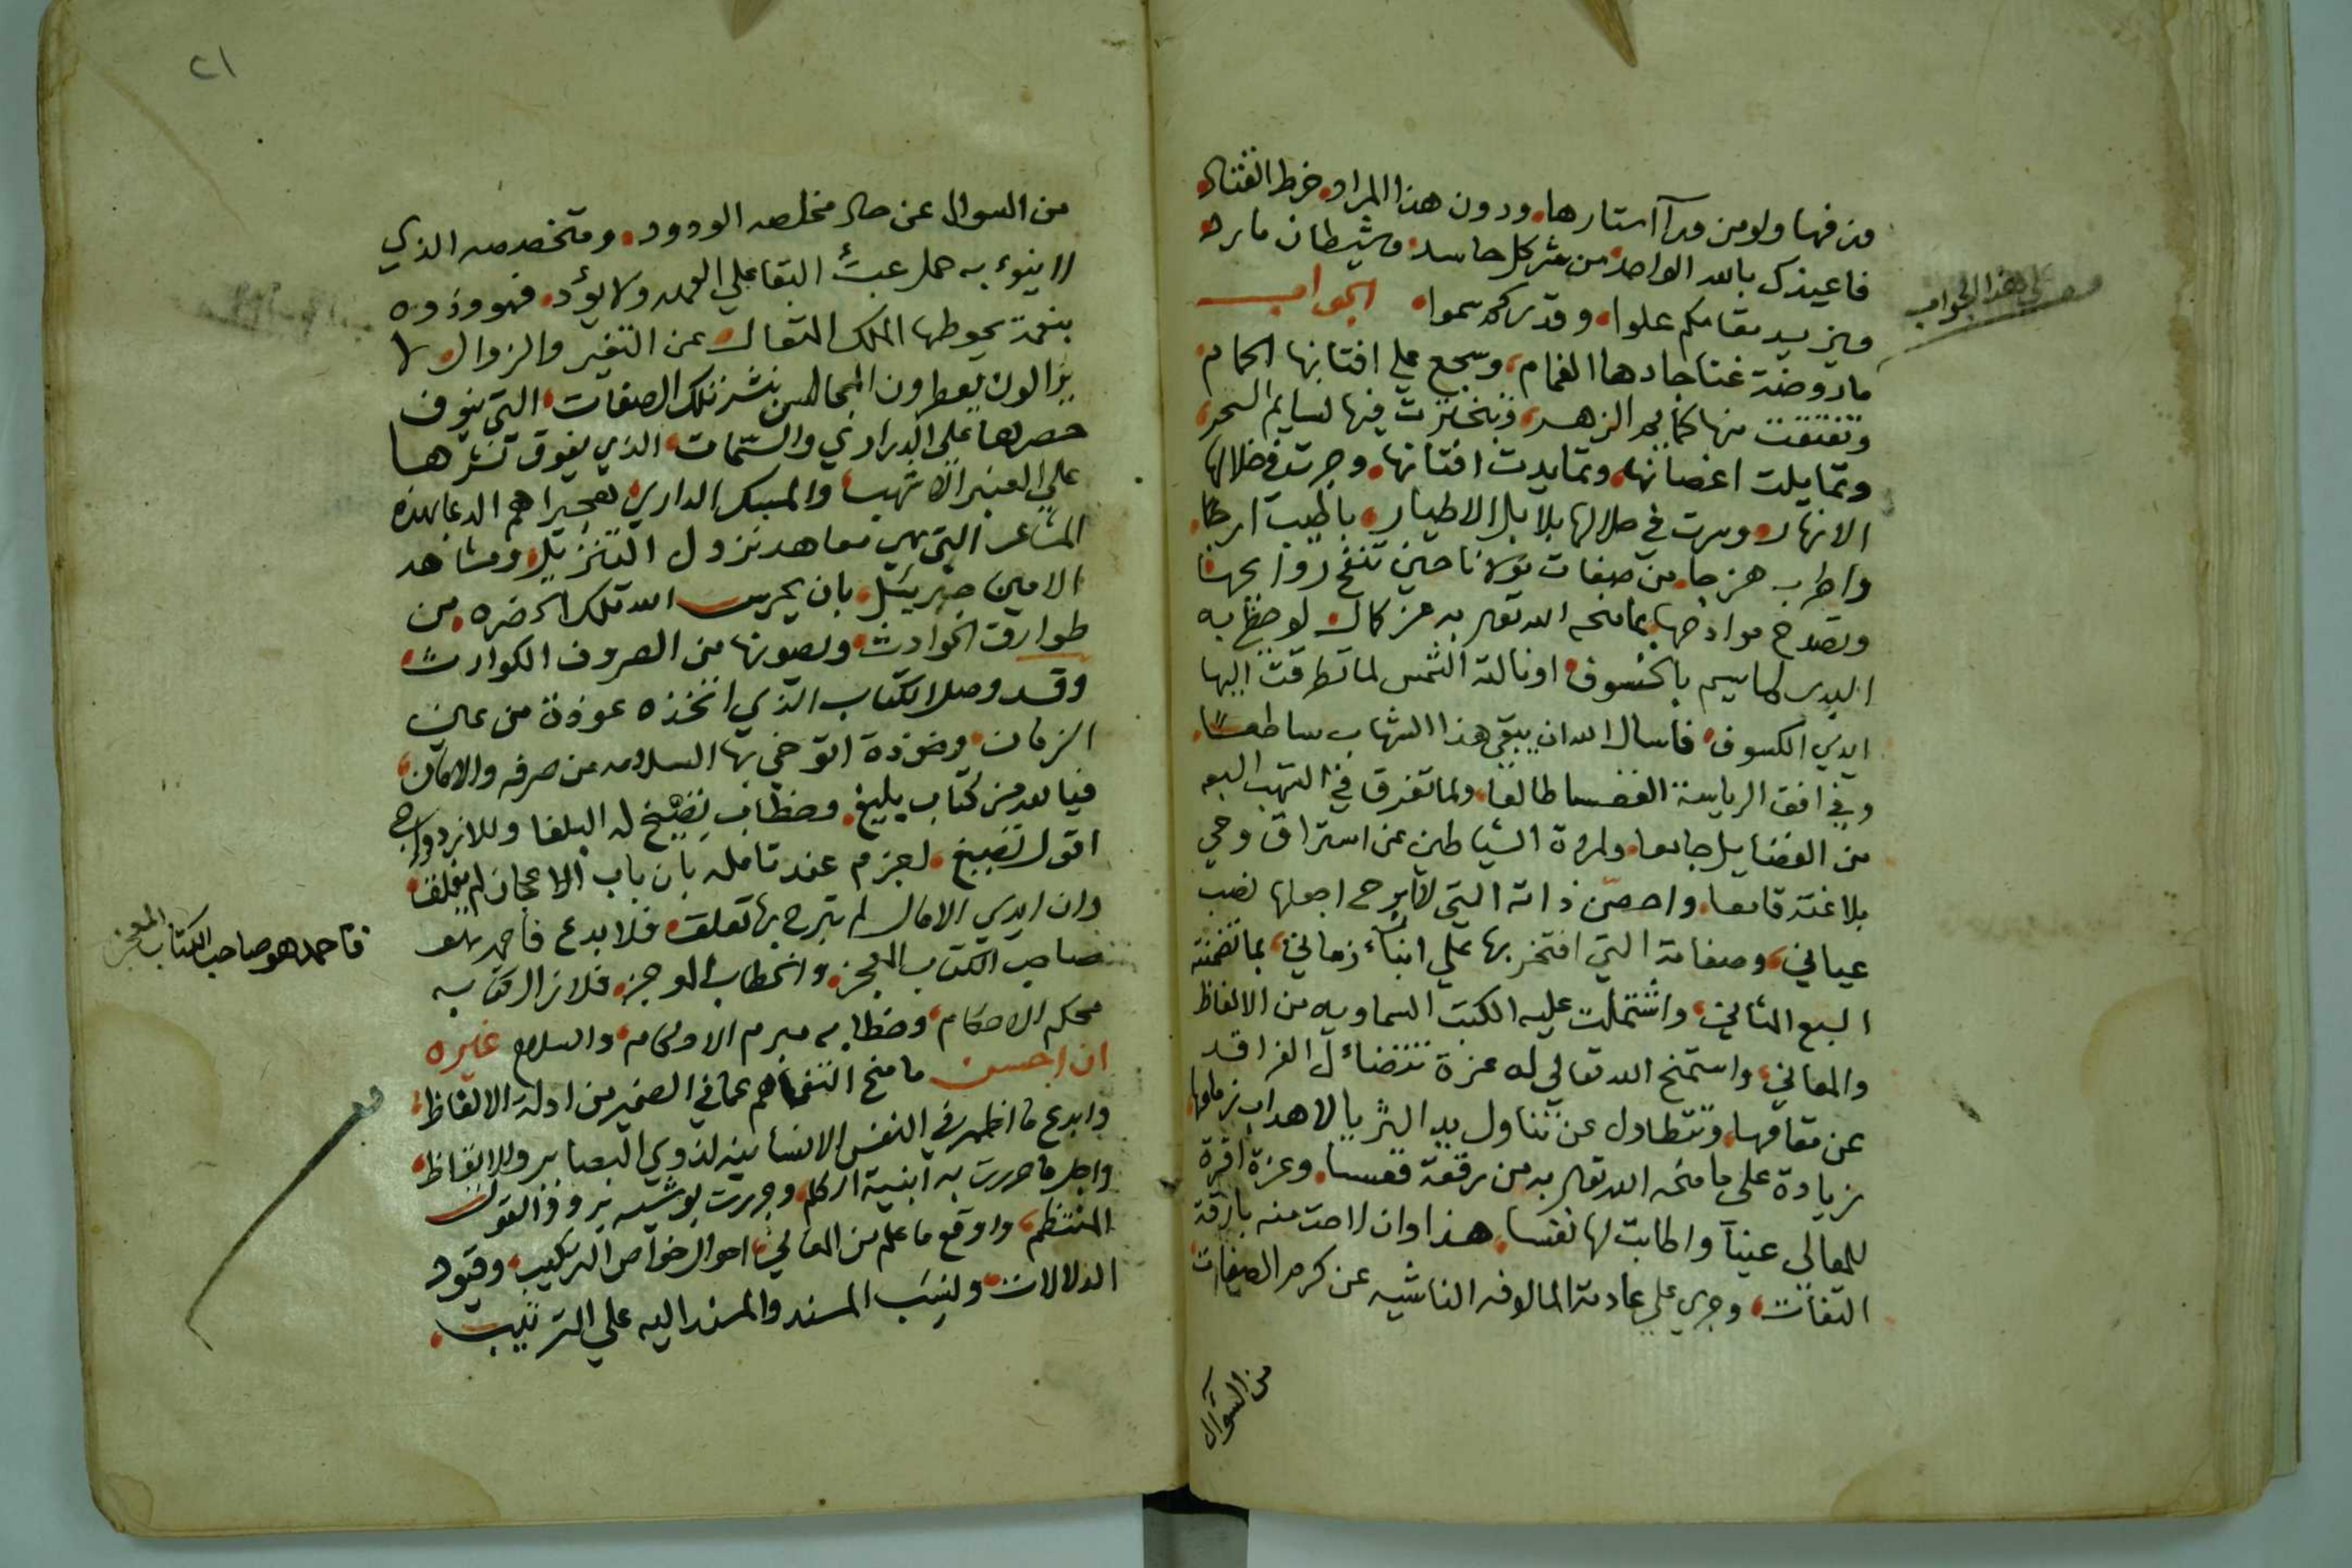 من فيها ولو من ورآ استارها ودون هذا المراد خرط القتاد
فاعيذك بالله الواحد من شر كل حاسد وشيطان مارد
ويزيد مقامكم علوا وقدركم سموا الجواب
على هذا الجواب
ما روضة غنا جادها الغمام وسجع على افنانها الحمام
وتفتقت منها كمايم الزهر وتبخترت فيها نسايم السحر
وتمايلت اغصانها وتمايدت افنانها وجرت في خلالها
الانهار وسرت في ظلالها بلابل الاطيار باطيب ارجا
واطرب هزجا من صفات مولانا حين تنفح روايحها
وتصدح صوادحها بما منحه الله تعالى به من كمال لو حظى به
البدر لما سيم بالخسوف او نالته الشمس لما تطرقت اليها
ايدي الكسوف فاسال الله ان يبقي هذا الشهاب ساطعا
وفي افق الرياسة القعسا طالعا ولما تفرق في الشهب السبعه
من الفضايل جامعا ولمردة الشياطين عن استراق وحي
بلاغته قامعا واحصن ذاته التي لا ابرح اجعلها نصب
عياني وصفاته التي افتخر بها على ابنآء زماني بما تضمنته
السبع المثاني واشتملت عليه الكتب السماويه من الالفاظ
والمعاني واستمنح الله تعالي له عزة تتضائل الفراقد
عن مقامها وتتطاول عن تناول يد الثريا لاهداب زمامها
زيادة على ما منحه الله تعالى به من رفعة قعسا وعزة اقرة
للمعالي عينا واطابت لها نفسا هذا وان لاحت منه بارقة
التفات وجري علي عادته المالوفه الناشيه عن كرم الصفات
من السوآل
٢١
من السوال عن حال مخلصه الودود ومتخصصه الذي
لا ينوء به حمل عبئ البقا علي العهد ولا يؤد فهو وذووه
بنعمة يحوطها الملك المتعال عن التغير والزوال لا
يزالون يعطرون المجالس بنشر تلك الصفات التي ينوف
حصرها علي الدراري والسمات الذي يفوق نشرها
علي العنبر الاشهب والمسك الداري هجيراهم الدعا بهذه
المشاعر التي هي معاهد نزول التنزيل ومشاهد
الامين جبريئل بان يحرس الله تلك الحضره من
طوارق الحوادث ويصونها من الصروف الكوارث
وقد وصل الكتاب الذي اتخذه عوذة من عين
الزمان وخوذة اتوخي بها السلامه من صرفه والامان
فيا لله من كتاب بليغ وخطاب يصيخ له البلغا وللازدواج
اقول تصيخ لجزم عند تامله بان باب الاعجاز لم يغلق
وان ايدي الامال لم تبرح بها تعلق فلا بدع فاحمد هو
صاحب الكتاب المعجز والخطاب الموجز فلا زال كتابه
فاحمد هو صاحب الكتاب المعجز
محكم الاحكام وخطابه مبرم الاحكام والسلام غيره
ان احسن ما منح التفاهم عما في الضمير من ادلة الالفاظ
وابدع ما اظهر في النفس الانسانيه لذوي البصاير والايقاظ
واجل ما حررت به ابنية الكلم وجررت بوشيه برود القول
المنتظم واوقع ما علم من المعاني احوال خواص التركيب وقيود
الدلالات ونسب المسند والمسند اليه علي الترتيب